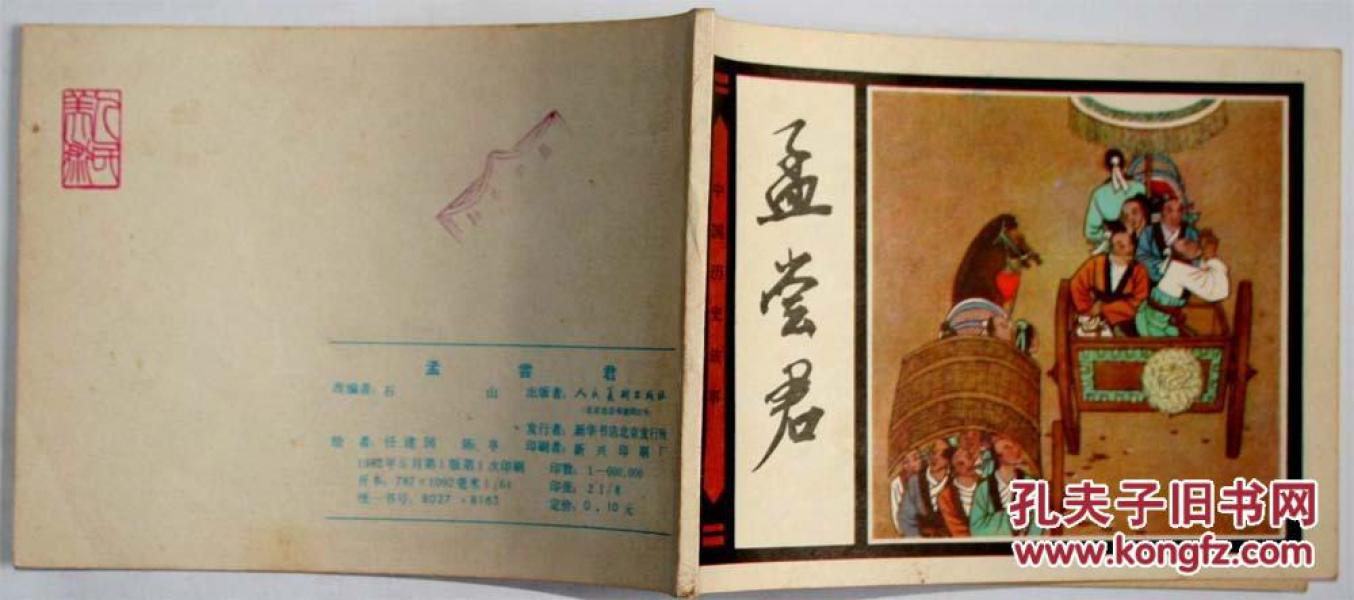 人民
美术
孟尝君
改编者：石 山 出版者：人民美术出版社
发行者：新华书店北京发行所
绘 者：任建国 陈 亭 印刷者：新兴印刷厂
1982年5月第1版第1次印刷 印数：1—600,000
开本：787×1092毫米1/64 印张：2 1/8
统一书号：8027·8163 定价：0.10元
中国历史故事
孟尝君
孔夫子旧书网
www.kongfz.com